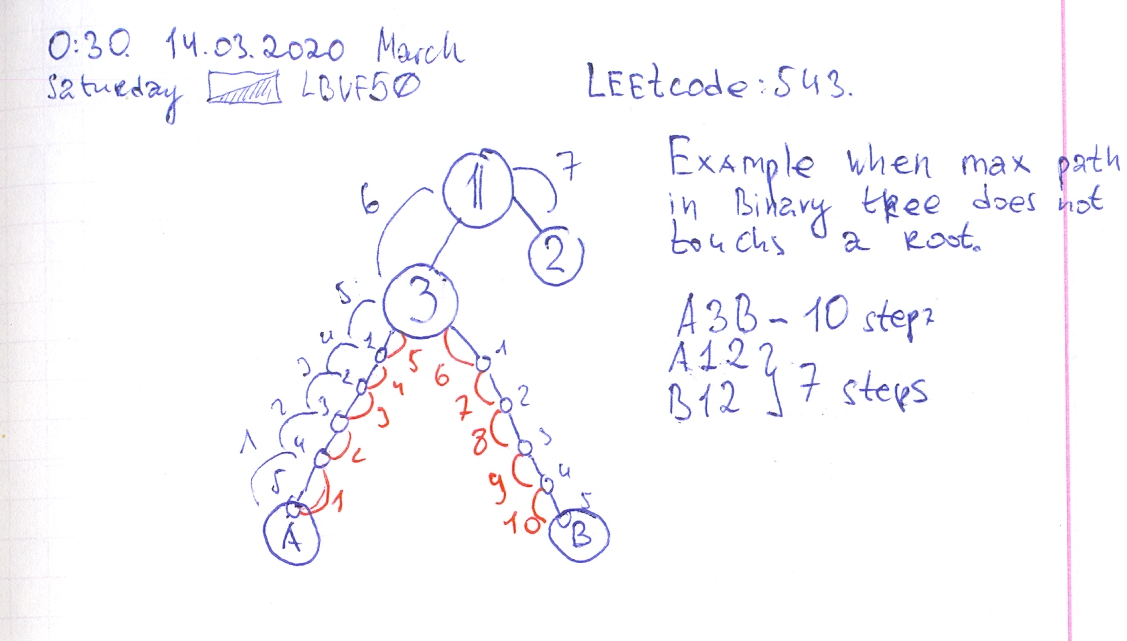 0:30. 14.03.2020 March
Saturday LBVF50
LEEtcode: 543.
Example when max path
in Binary tree does not
touchs a root.
A3B - 10 steps
A12 }
B12 } 7 steps
1
7
6
2
3
5
4 1 5 6 1
3 2 4 7 2
2 3 3 8 3
1 4 2 9 4
5 1 10 5
A B